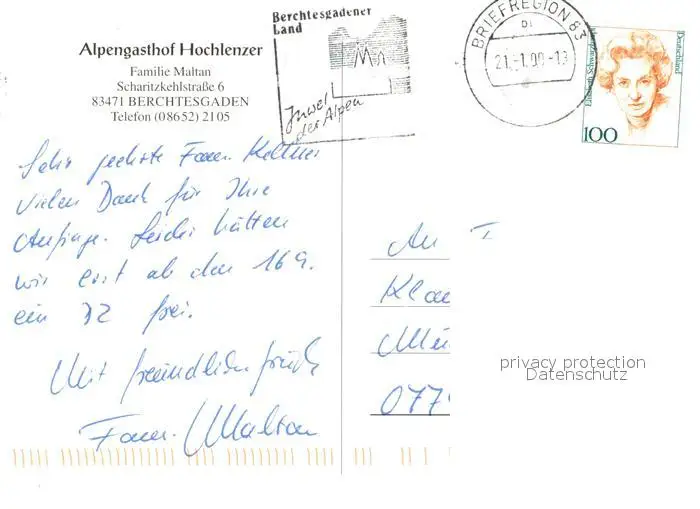 Alpengasthof Hochlenzer
Familie Maltan
Scharitzkehlstraße 6
83471 BERCHTESGADEN
Telefon (0 86 52) 21 05
Berchtesgadener
Land
Juwel
der Alpen
BRIEFREGION 83
21.-1.00-13
Deutschland
100
Sehr geehrte Fam.
vielen Dank für Ihre
Anfrage. Leider hätten
wir erst ab den 16.9.
ein DZ frei.
Mit freundlichen Grüßen
Fam. Maltan
An
077
privacy protection
Datenschutz